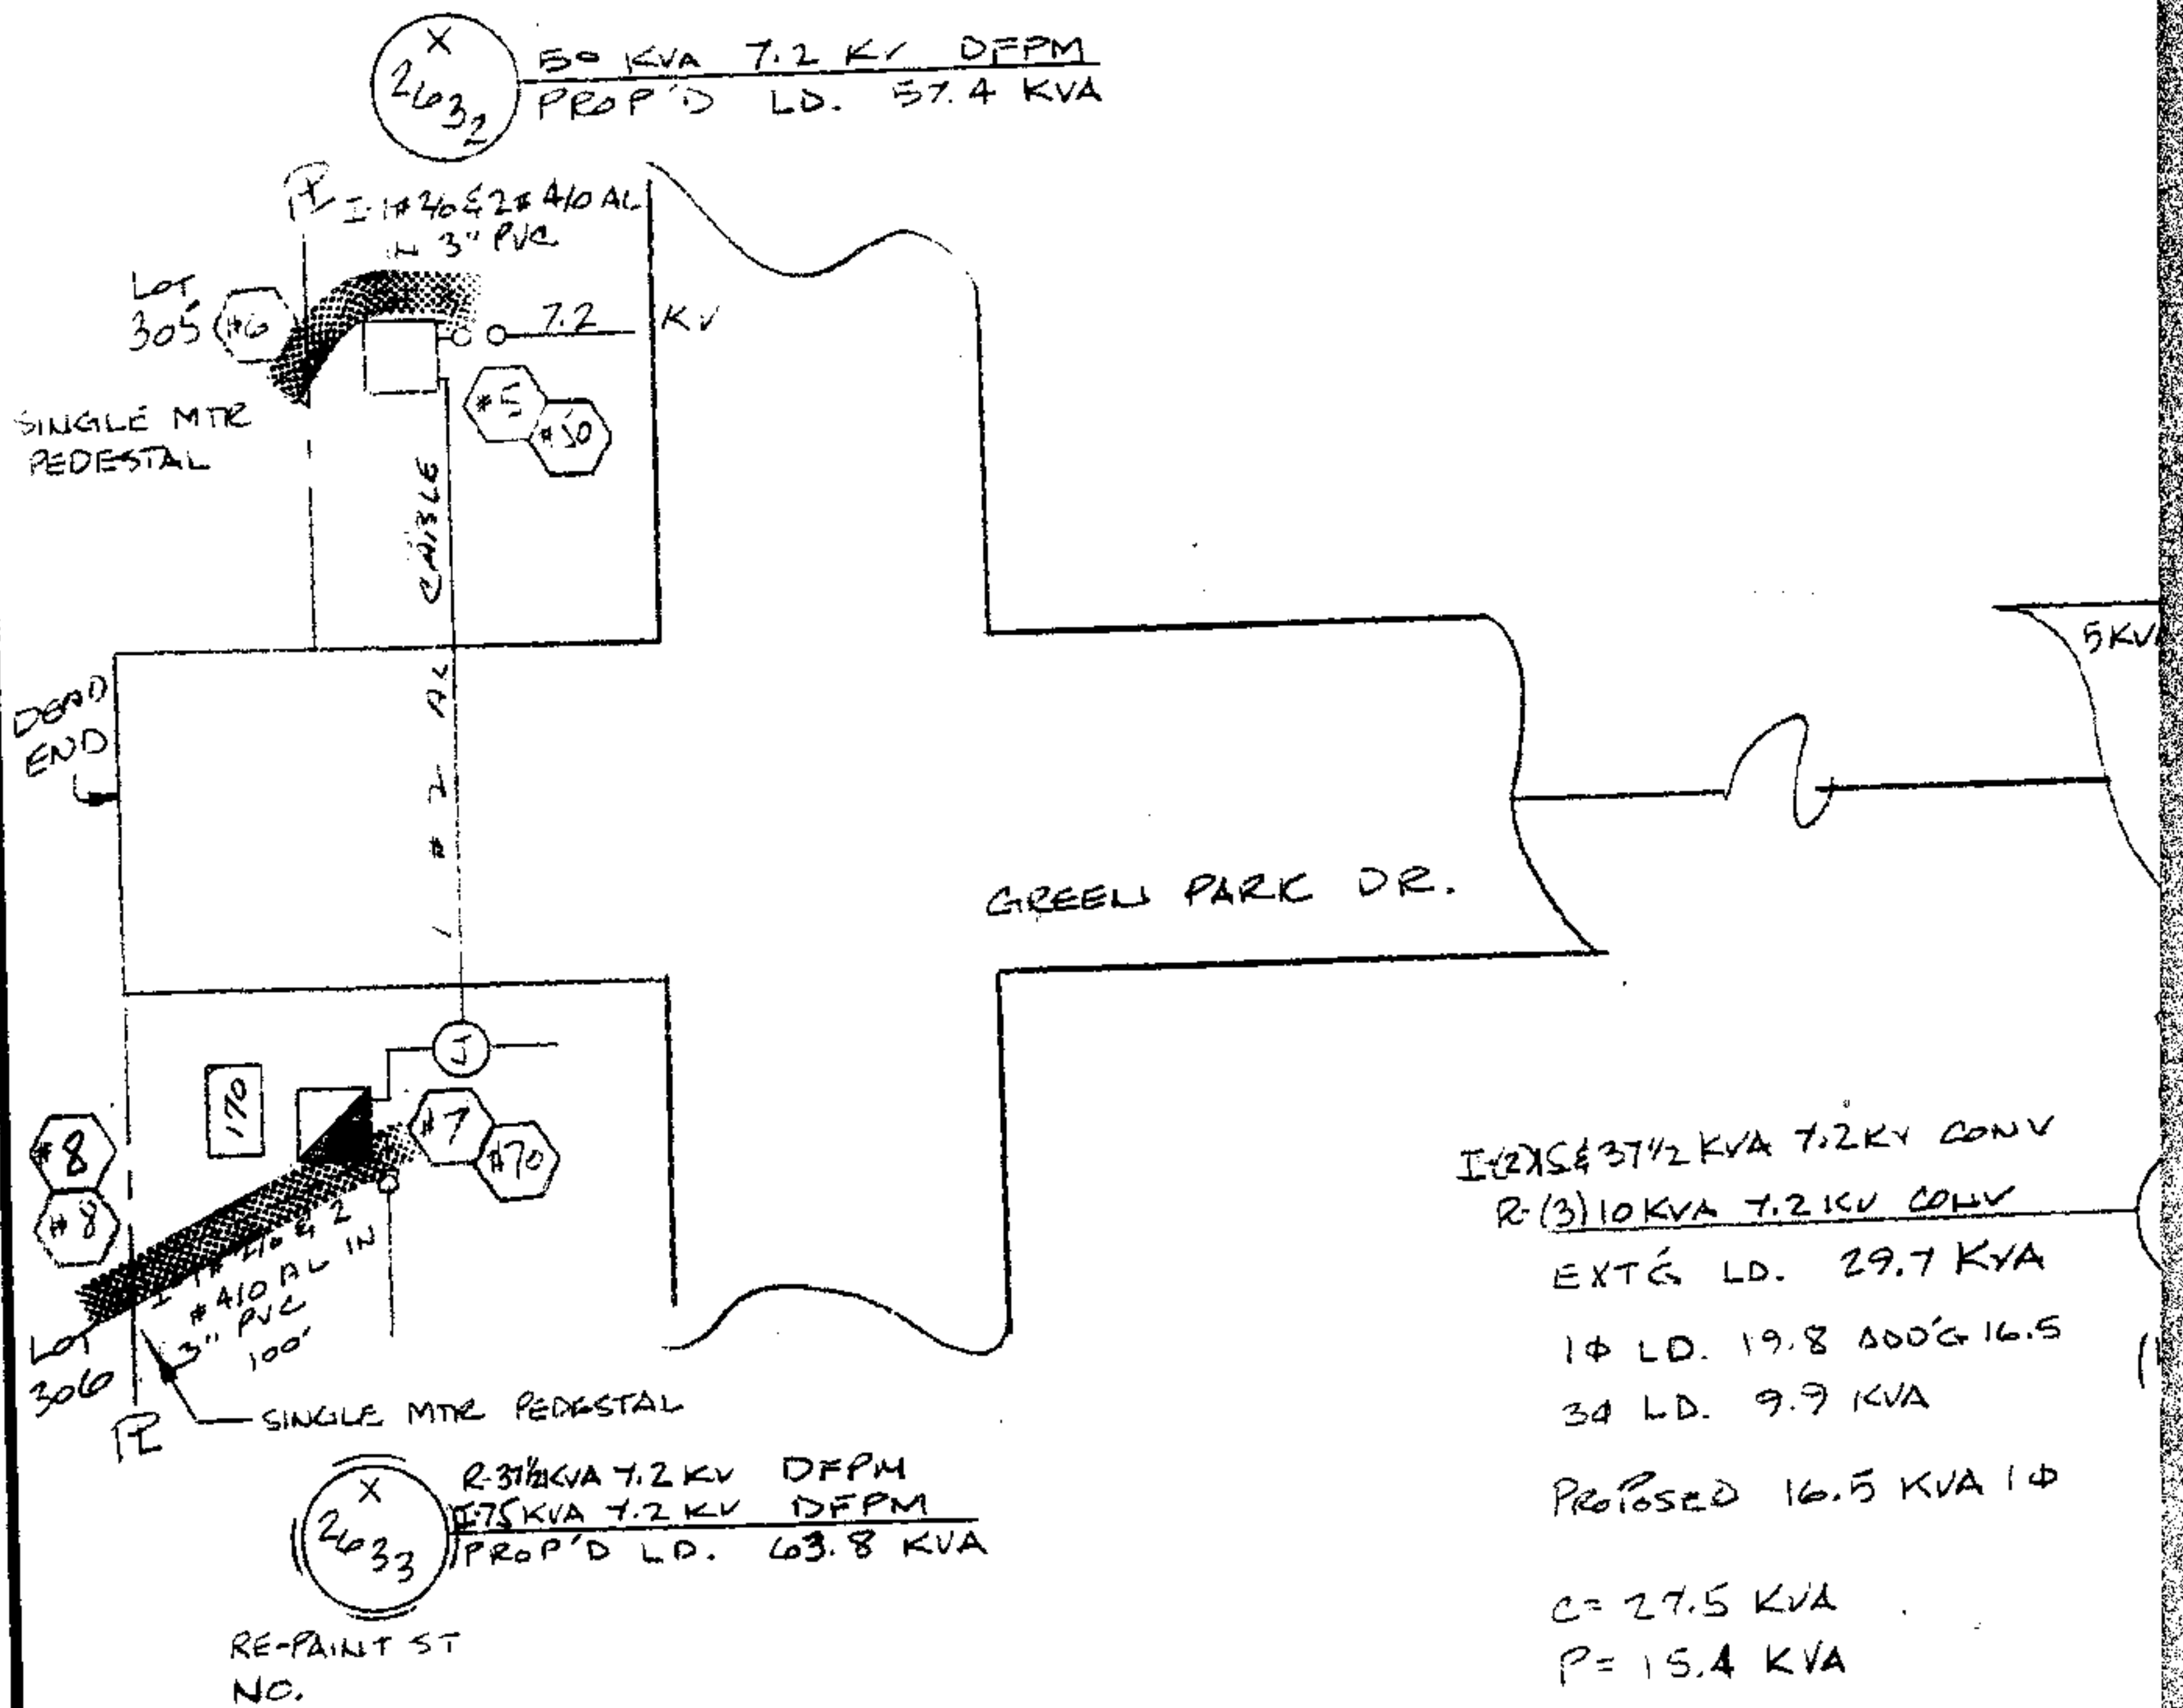 X
2632
50 KVA 7.2 KV DFPM
PROP'D LD. 57.4 KVA
PL
I-1#2/0 & 2#4/0 AL
IN 3" PVC
LOT
305
#6
7.2 KV
#5
#50
SINGLE MTR
PEDESTAL
1 #2 AL CABLE
5 KV
DEAD
END
GREEN PARK DR.
J
170
#7
#70
#8
#8
I 1# 2/0 & 2
#4/0 AL IN
3" PVC
100'
LOT
306
PL
SINGLE MTR PEDESTAL
X
2633
R-37½KVA 7.2 KV DFPM
I-75KVA 7.2 KV DFPM
PROP'D LD. 63.8 KVA
RE-PAINT ST
NO.
37½ KVA 7.2KV CONV
R-(3)10 KVA 7.2 KV CONV
EXT'G LD. 29.7 KVA
1Φ LD. 19.8 ADD'G 16.5
3Φ LD. 9.9 KVA
PROPOSED 16.5 KVA 1Φ
C= 27.5 KVA
P= 15.4 KVA